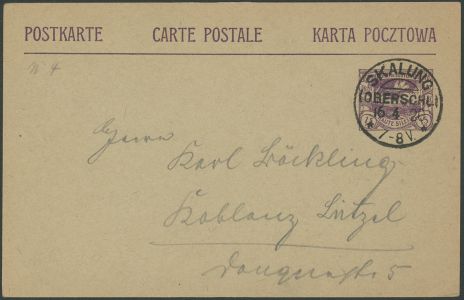 POSTKARTE CARTE POSTALE KARTA POCZTOWA
N 4
SKALUNG
(OBERSCHL.)
6 4
7-8V
Herrn
Karl Böckling
Koblenz Lützel
5